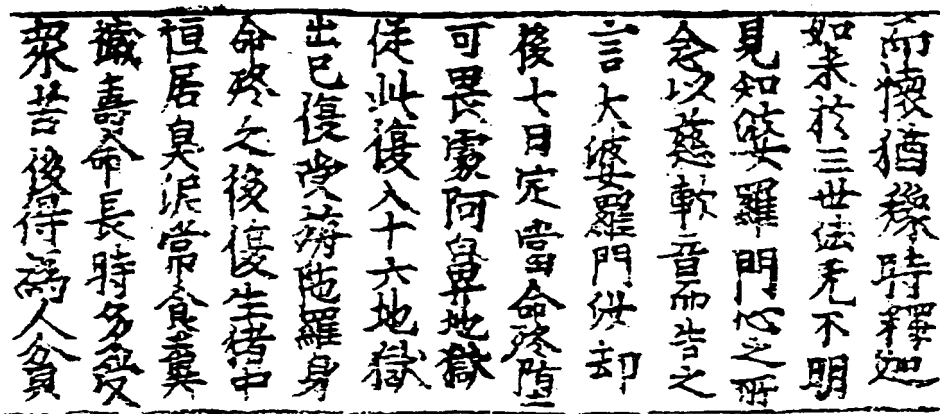 而懷猶豫時釋迦
如来於三世法无不明
見知婆羅門心之所
念以慈軟音而告之
言大婆羅門汝却
後七日定當命終墮
可畏處阿鼻地獄
從此復入十六地獄
出已復受旃陁羅身
命終之後復生猪中
恒居臭泥常食糞
穢壽命長時多受
衆苦後得爲人貧